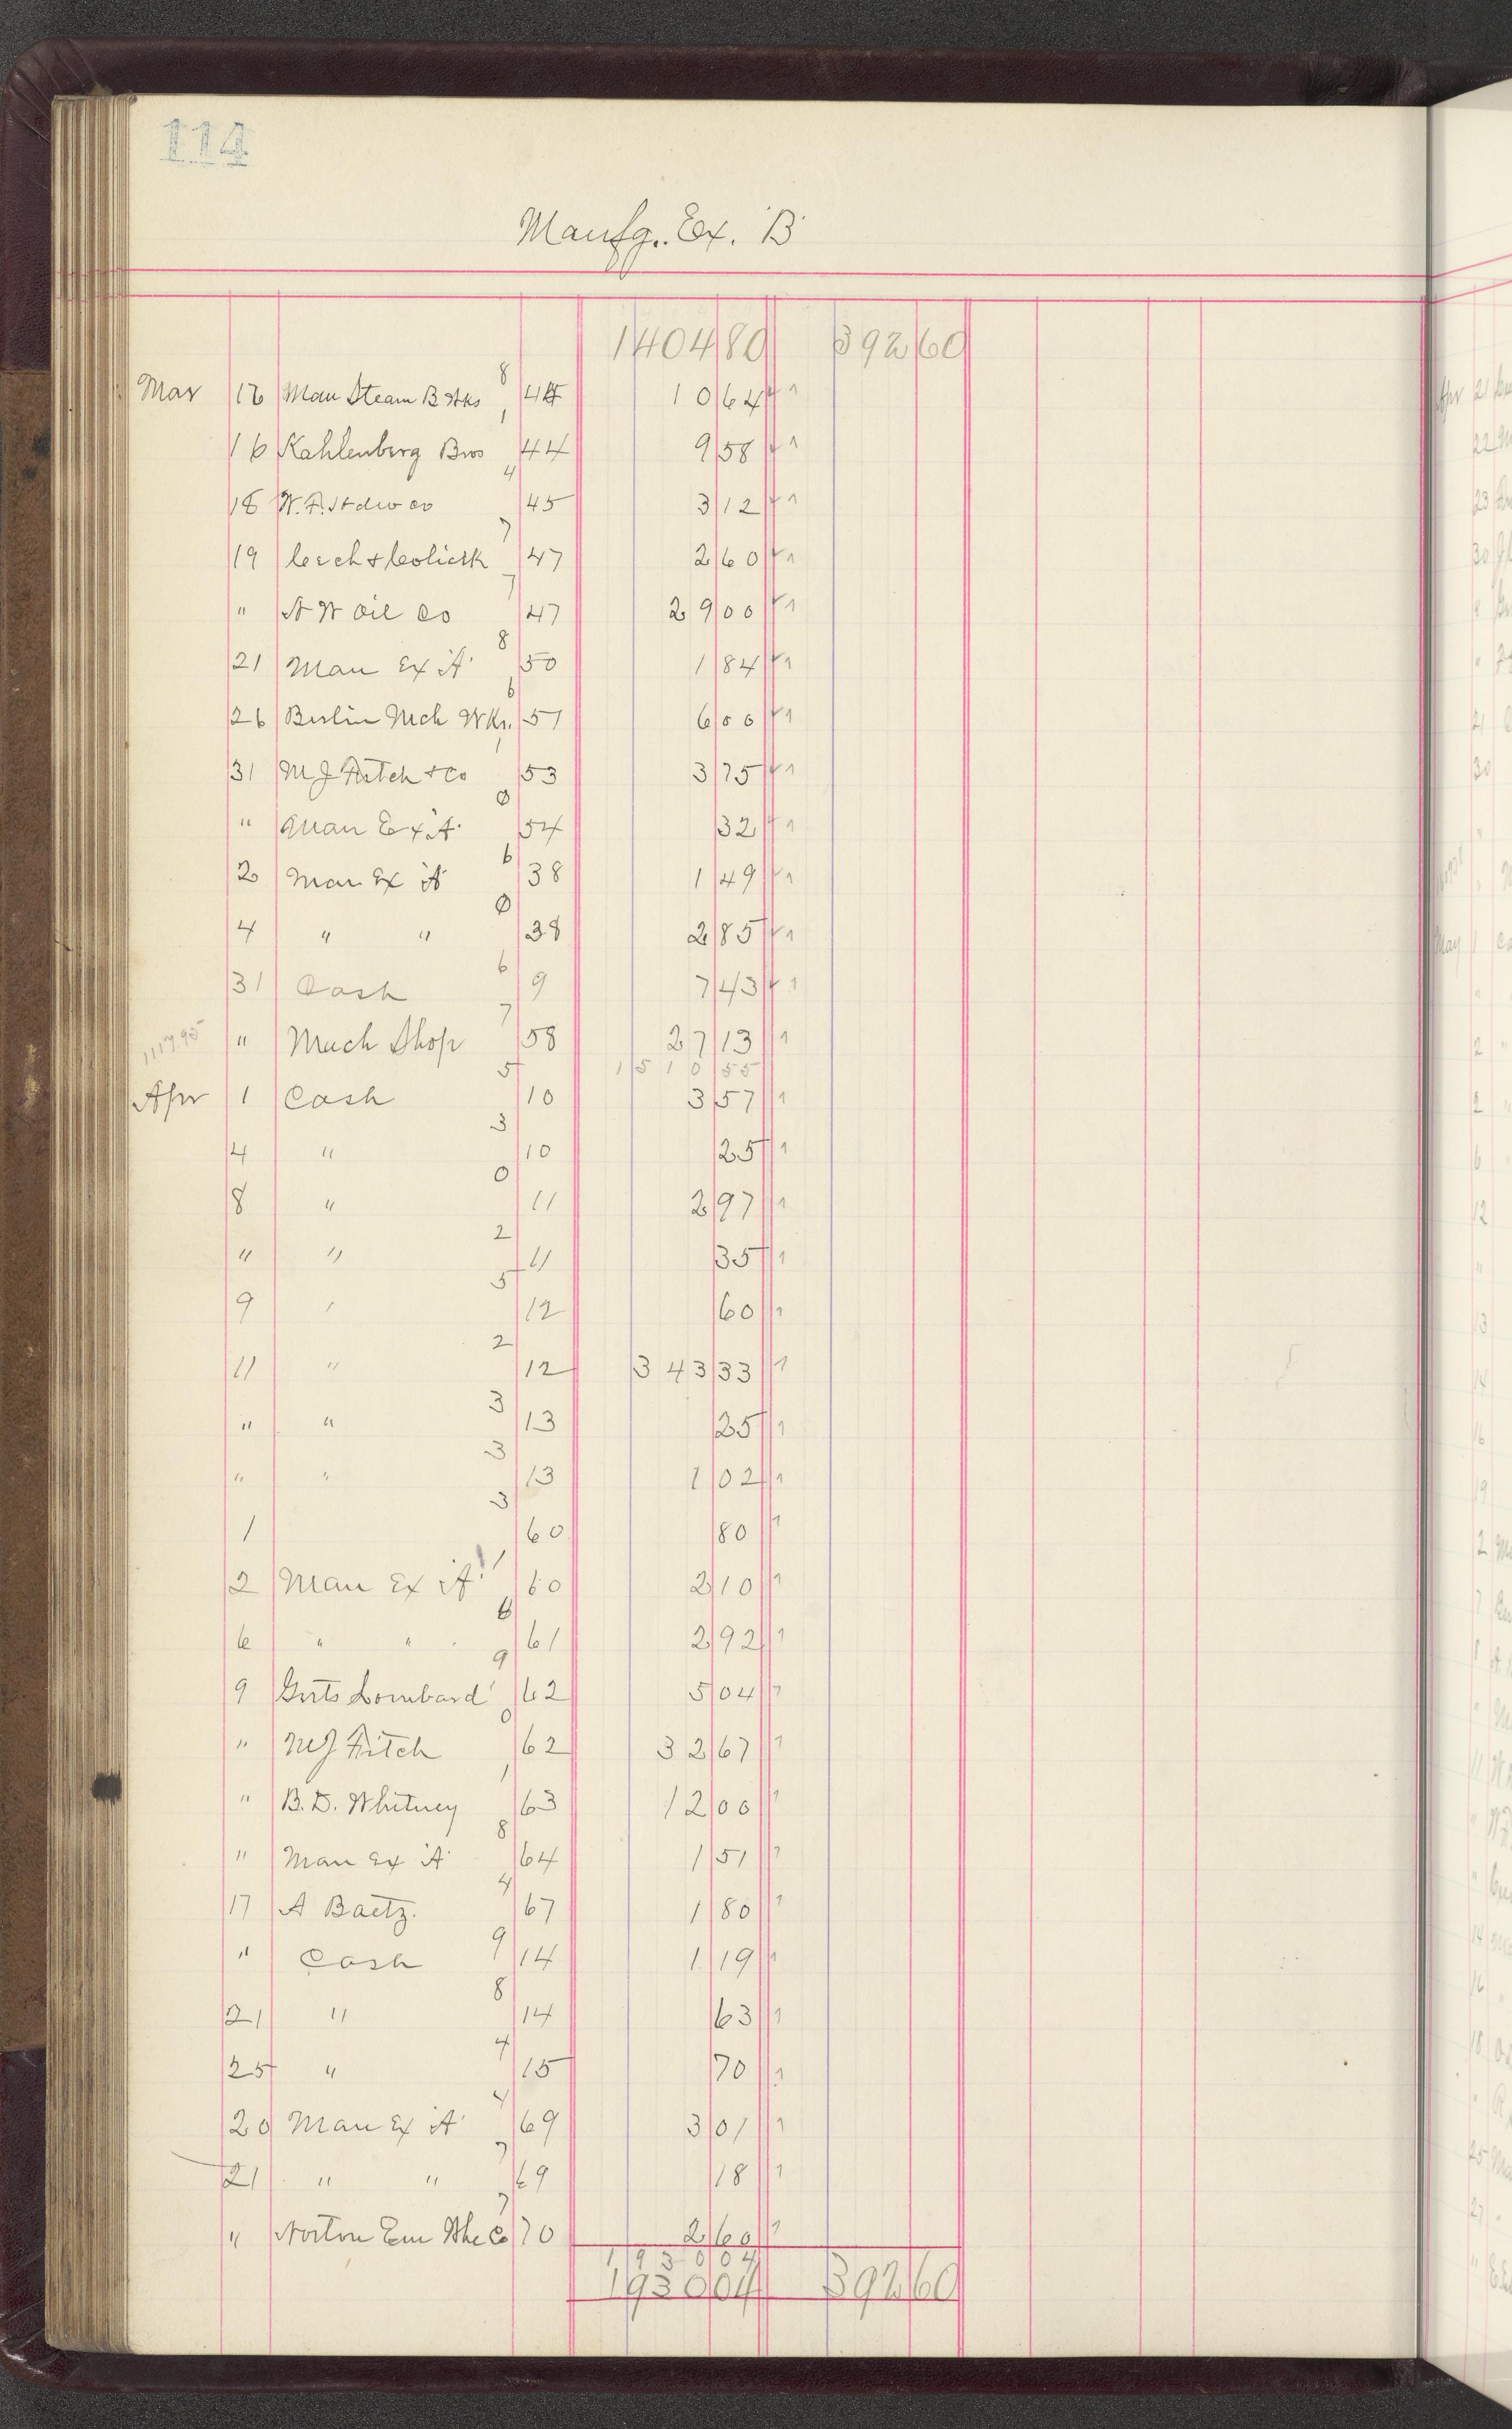 114
Manfg. Ex. "B"
1404 80 392 60
Mar 16 Man Steam B Wks 8 44 10 64
16 Kahlenberg Bros 1 44 9 58
18 W.F. Hdw co 4 45 3 12
19 7 47 2 60
" N W Oil Co 7 47 29 00
21 Man Ex "A" 8 50 1 84
26 Berlin Mch Wks. 6 51 6 00
31 M J Fitch & Co 1 53 3 75
" Man Ex "A" 0 54 32
2 Man Ex "A" 6 38 1 49
4 " " 0 38 2 85
31 Cash 6 9 7 43
1117.95 " Mach Shop 7 58 27 13
1510 55
Apr 1 Cash 5 10 3 57
4 " 3 10 25
8 " 0 11 2 97
" " 2 11 35
9 " 5 12 60
11 " 2 12 343 33
" " 3 13 25
" " 3 13 1 02
1 3 60 80
2 Man Ex "A" 1 60 2 10
6 " " 6 61 2 92
9 Gerts Lombard 9 62 5 04
" M J Fitch 0 62 32 67
" B. D. Whitney 1 63 12 00
" Man Ex "A" 8 64 1 51
17 A Baetz. 4 67 1 80
" Cash 9 14 1 19
21 " 8 14 63
25 " 4 15 70
20 Man Ex "A" 4 69 3 01
21 " " 7 69 18
" Norton Em Whe Co 7 70 2 60
1930 04
1930 04 392 60